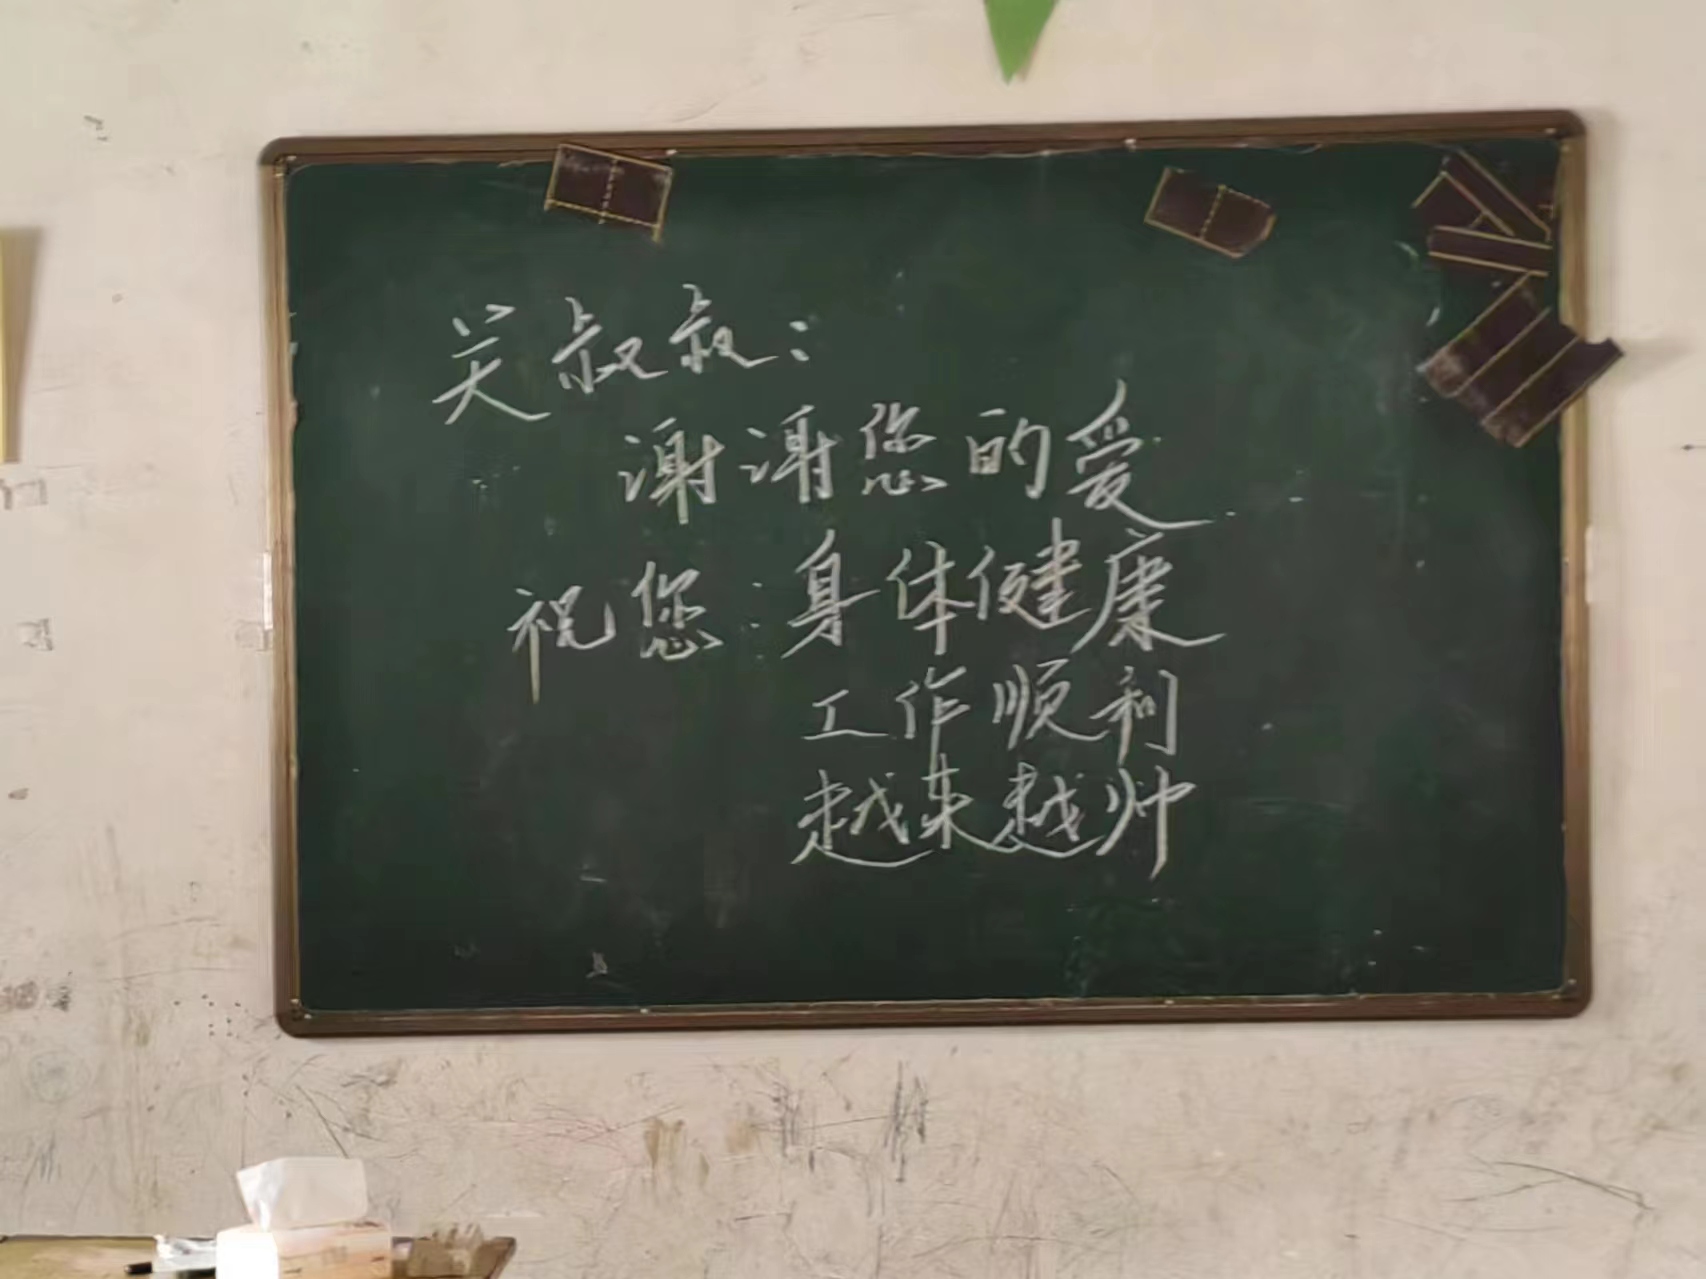 关叔叔:
谢谢您的爱
祝您:身体健康
工作顺利
越来越帅